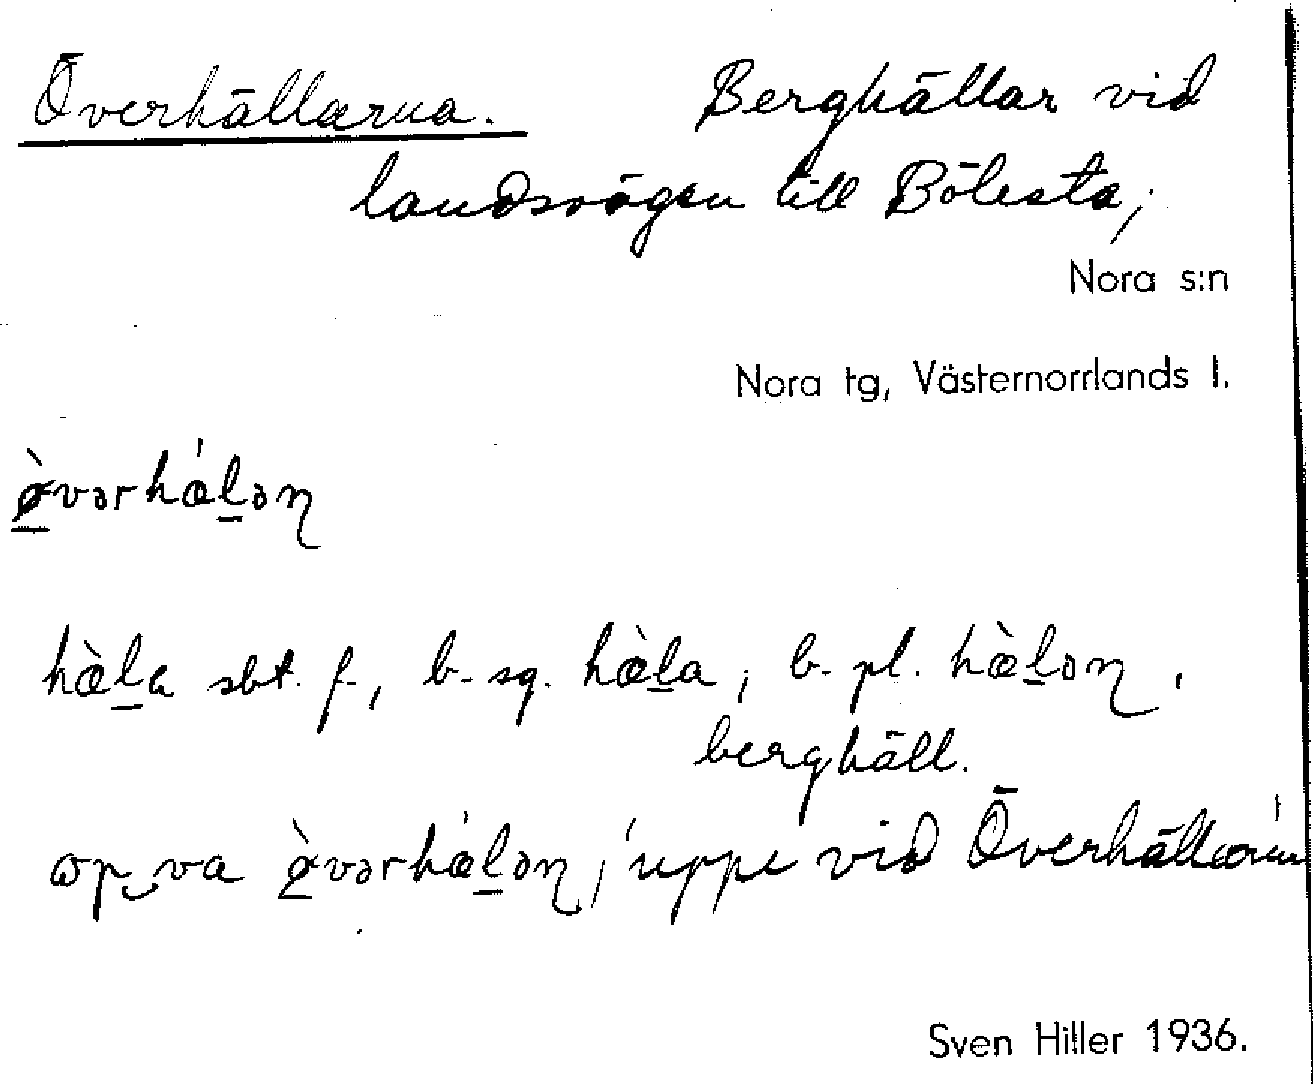 Överhällarna. Berghällar vid
landsvägen till Bölesta;
Nora s:n
Nora tg, Västernorrlands l.
ø̀vərhǽl̠əɳ
hæ̀l̠a sbt. f., b. sg. hæ̀l̠a, b. pl. hæ̀l̠əɳ,
berghäll.
ɷp va ø̀vərhǽl̠əɳ, 'uppe vid Överhällarna'
Sven Hiller 1936.